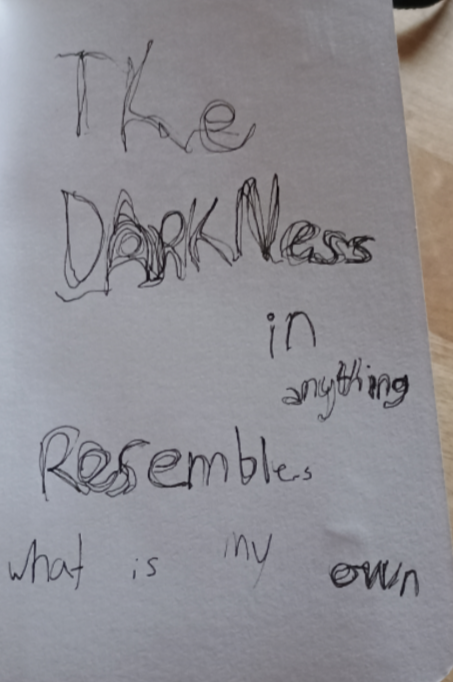 The
DARKNess
in
anything
Resembles
what is my own